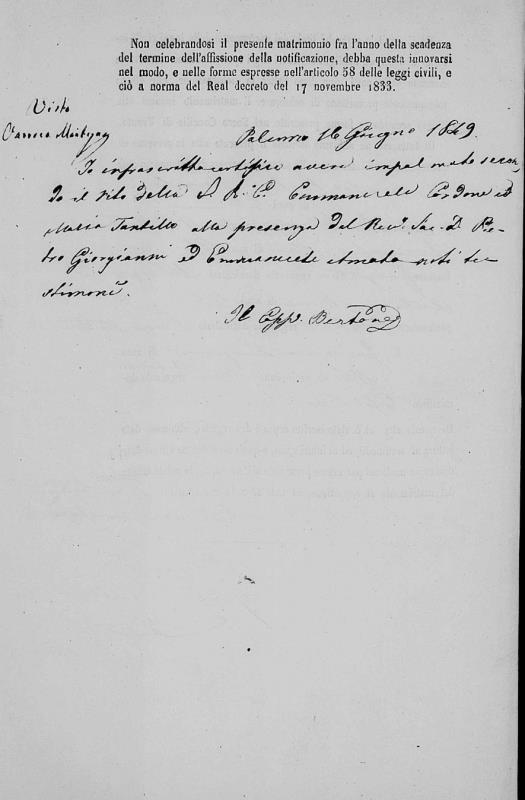 Non celebrandosi il presente matrimonio fra l'anno della scadenza
del termine dell'affissione della notificazione, debba questa innovarsi
nel modo, e nelle forme espresse nell'articolo 58 delle leggi civili, e
ciò a norma del Real decreto del 17 novembre 1833.
Visto
Palermo 16 Giugno 1849
Io infrascritto certifico avere impalmato secon
do il rito della S. R. C. Emmanuele Cordone ed
Maria Tantillo alla presenza del Revd. Sac. D. Pie
tro Giorgianni ed Emmanuele Amato noti te
stimonî.
Il Capp.